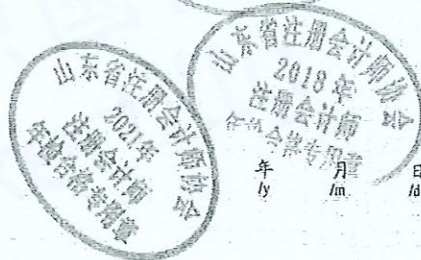 山东省注册会计师协会
2021年
注册会计师
年检合格专用章
山东省注册会计师协会
2018年
注册会计师
年检合格专用章
年 月 日
/y /m /d